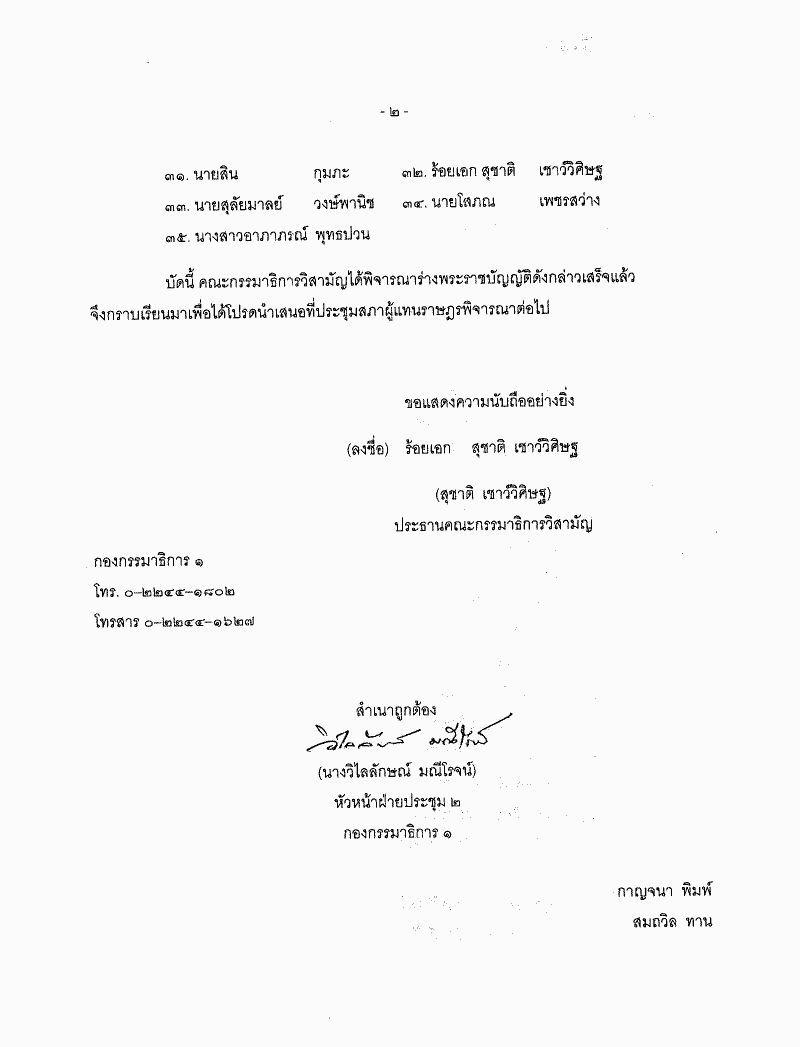 - ๒ -
๓๑. นายสิน กุมภะ ๓๒. ร้อยเอก สุชาติ เชาว์วิศิษฐ
๓๓. นายสุลัยมาลย์ วงษ์พานิช ๓๔. นายโสภณ เพชรสว่าง
๓๕. นางสาวอาภาภรณ์ พุทธปวน
บัดนี้ คณะกรรมาธิการวิสามัญได้พิจารณาร่างพระราชบัญญัติดังกล่าวเสร็จแล้ว
จึงกราบเรียนมาเพื่อได้โปรดนำเสนอที่ประชุมสภาผู้แทนราษฎรพิจารณาต่อไป
ขอแสดงความนับถืออย่างยิ่ง
(ลงชื่อ) ร้อยเอก สุชาติ เชาว์วิศิษฐ
(สุชาติ เชาว์วิศิษฐ)
ประธานคณะกรรมาธิการวิสามัญ
กองกรรมาธิการ ๑
โทร. ๐-๒๒๔๔-๑๘๐๒
โทรสาร ๐-๒๒๔๔-๑๖๒๗
สำเนาถูกต้อง
วิไลลักษณ์ มณีโรจน์
(นางวิไลลักษณ์ มณีโรจน์)
หัวหน้าฝ่ายประชุม ๒
กองกรรมาธิการ ๑
กาญจนา พิมพ์
สมถวิล ทาน